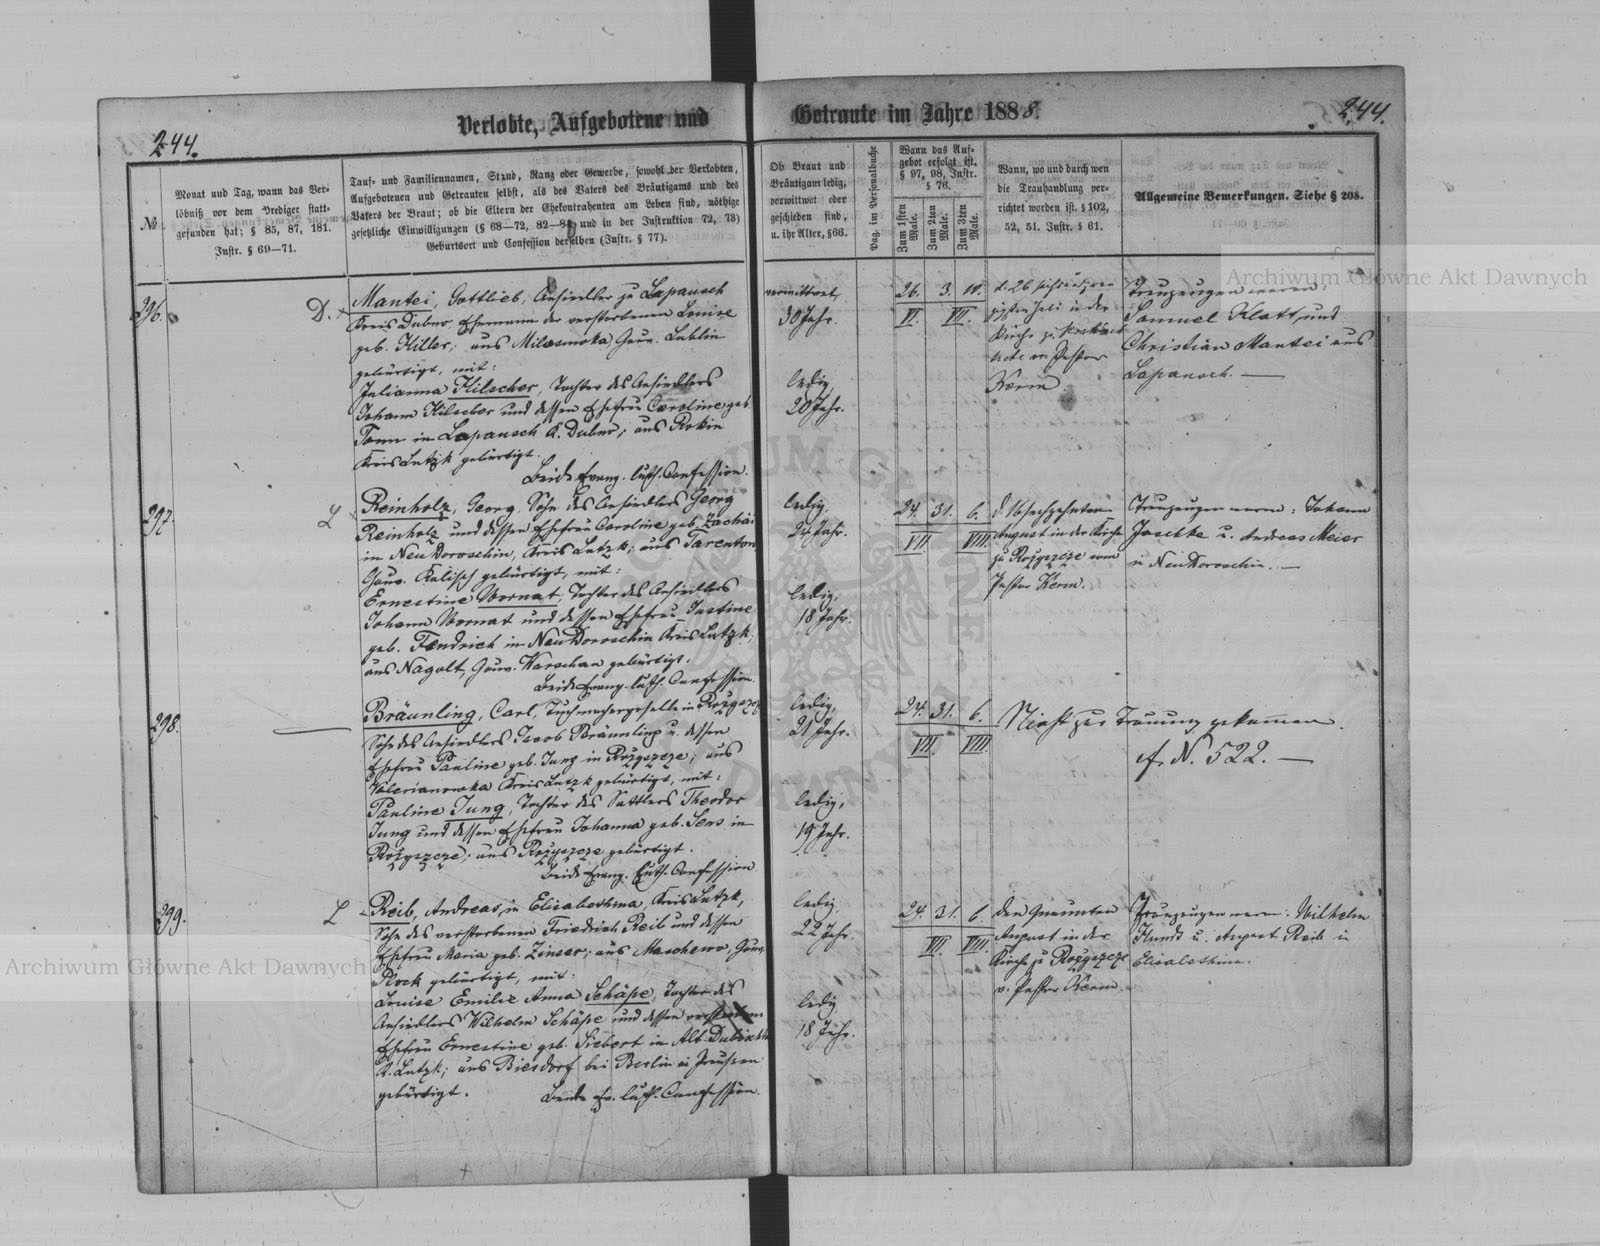 244.
Verlobte, Aufgebotene und
Getraute im Jahre 1888.
244.
№
Monat und Tag, wann das Ver-
löbniß vor dem Prediger statt-
gefunden hat; § 85, 87, 181.
Instr. § 69—71.
Tauf- und Familiennamen, Stand, Rang oder Gewerbe, sowohl der Verlobten,
Aufgebotenen und Getrauten selbst, als des Vaters des Bräutigams und des
Vaters der Braut; ob die Eltern der Ehekontrahenten am Leben sind, nöthige
gesetzliche Einwilligungen (§ 68—72, 82—8 und in der Instruktion 72, 73)
Geburtsort und Confession derselben (Instr. § 77).
Ob Braut und
Bräutigam ledig,
verwittwet oder
geschieden sind,
u. ihr Alter, § 66.
Pag. im Personalbuche
Wann das Auf-
gebot erfolgt ist.
§ 97, 98, Instr.
§ 76.
Zum 1sten Male.
Zum 2ten Male.
Zum 3ten Male.
Wann, wo und durch wen
die Trauhandlung ver-
richtet worden ist. § 102,
52, 51. Instr. § 61.
Allgemeine Bemerkungen. Siehe § 208.
296.
D.
Mantei, Gottlieb, Ansiedler zu Lapausch
Kreis Dubno Ehemann der verstorbenen Louise
geb. Hiller; aus Gouv. Lublin
gebürtigt, mit:
Julianna Hilscher, Tochter des Ansiedlers
Johann Hilscher und dessen Ehefrau Caroline geb.
Tonn in Lapausch K. Dubno; aus Rokin
Kreis Lutzk gebürtigt.
Beide Evang. luth. Confession.
verwittwet,
30 Jahr.
ledig,
20 Jahr.
26. 3. 10.
VI. VII.
d. 26
Juli in der
Kirche zu
Pastor
Kerm
Trauzeugen waren:
Samuel Klatt und
Christian Mantei aus
Lapausch. —
297.
L
Reinholz, Georg, Sohn des Ansiedlers Georg
Reinholz und dessen Ehefrau Caroline geb. Zachai
in Neu Doroschin, Kreis Lutzk; aus Tarentow
Gouv. Kalisch gebürtigt, mit:
Ernestine Wornat, Tochter des Ansiedlers
Johann Wornat und dessen Ehefrau Justine
geb. Fendrich in Neu Dorroschin Kreis Lutzk;
aus Nagolt, Gouv. Warschau gebürtigt.
Beide Evang. luth. Confession.
ledig,
24 Jahr.
ledig,
18 Jahr.
24. 31. 6.
VII. VIII.
d. 16 sechzehnten
August in der Kirche
zu Rożyszcze vom
Pastor Kerm.
Trauzeugen waren: Johann
Jaschke u. Andreas Meier
in Neu Dorroschin. —
298.
Bräunling, Carl, Tuchmachergeselle in Rożyszcze
Sohn des Ansiedlers Jacob Bräunling u. dessen
Ehefrau Pauline geb. Jung in Rożyszcze; aus
Valerianowka Kreis Lutzk gebürtigt, mit:
Pauline Jung, Tochter des Sattlers Theodor
Jung und dessen Ehefrau Johanna geb. Sens in
Rożyszcze; aus Rożyszcze gebürtigt.
Beide Evang. Luth. Confession
ledig,
21 Jahr.
ledig,
19 Jahr.
24. 31. 6.
VII. VIII.
Nicht zur Trauung gekommen.
cf. N. 522. —
299.
L
Reib, Andreas, in Elisabethina, Kreis Lutzk,
Sohn des verstorbenen Friedrich Reib und dessen
Ehefrau Maria geb. Zinser; aus Maschewo, Gouv.
Plock gebürtigt, mit:
Louise Emilie Anna Schäpe, Tochter des
Ansiedlers Wilhelm Schäpe und dessen
Ehefrau Ernestine geb. Siebert in Alt-
K. Lutzk; aus Biesdorf bei Berlin in Preußen
gebürtigt.
Beide Ev. luth. Confession.
ledig
22 Jahr.
ledig
18 Jahr.
24. 31. 6.
VII. VIII.
den 9 neunten
August in der
Kirche zu Rożyszcze
v. Pastor Kerm.
Trauzeugen waren: Wilhelm
u. August Reib in
Elisabethina.
Archiwum Główne Akt Dawnych
Archiwum Główne Akt Dawnych